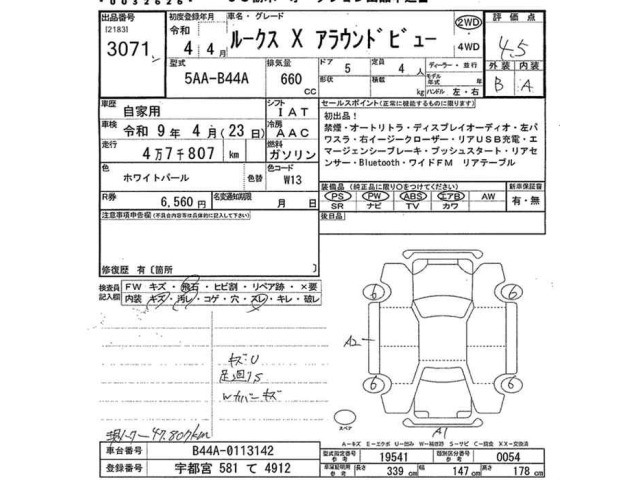 出品番号
[2183]
3071
初度登録年月
令和
4年4月
車名・グレード
ルークス X アラウンドビュー
2WD
4WD
評価点
4.5
外装 内装
B A
型式
5AA-B44A
排気量
660
CC
ドア
5
形状
定員
4人
積載
kg
ディーラー・並行
モデル年式 年
ハンドル 左・右
車歴
自家用
シフト
IAT
セールスポイント(正常に機能するものに限ります)
車検
令和 9年 4月(23日)
冷房
AAC
初出品!
禁煙・オートリトラ・ディスプレイオーディオ・左パ
ワスラ・右イージークローザー・リアUSB充電・エ
マージェンシーブレーキ・プッシュスタート・リアセ
ンサー・Bluetooth・ワイドFM リアテーブル
走行
4万7千807 km
燃料
ガソリン
色
ホワイトパール
色替
色コード
W13
R券
6,560 円
名変通知期限
月 日
装備品(純正品に限り○をつけてください)
PS PW ABS エアB AW
SR ナビ TV カワ
新車保証書
有・無
注意事項申告欄(不具合内容等は具体的に記入して下さい)
後日品
修復歴 有〔箇所 〕
検査員記入欄
FW キズ・飛石・ヒビ割・リペア跡・×要
内装 キズ・汚レ・コゲ・穴・スレ・キレ・破レ
キズU
Wカバーキズ
47.807km
6
6
A2
6
6
A1
スペア
A-キズ E-エクボ U-凹み W-補修跡 S-サビ C-腐食 XX-交換済
車台番号
B44A-0113142
登録番号
宇都宮 581 て 4912
型式指定番号
参考
19541
類別区分番号
参考
0054
車庫証明用
参考
長さ
339 cm
幅
147 cm
高さ
178 cm